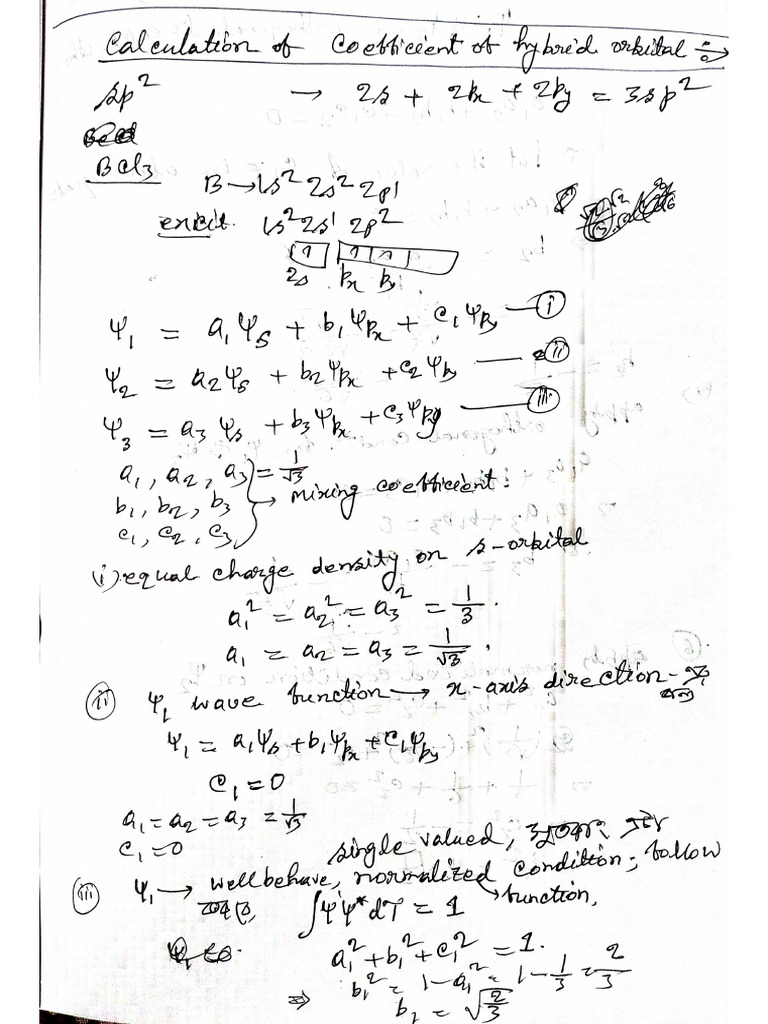 Calculation of Coefficient of hybrid orbital :→
sp² → 2s + 2px + 2py = 3sp²
BCl3
B → 1s² 2s² 2p¹
excit. 1s² 2s¹ 2p²
1 1 1
2s px py
Ψ1 = a1Ψs + b1Ψpx + c1Ψpy — (i)
Ψ2 = a2Ψs + b2Ψpx + c2Ψpy — (ii)
Ψ3 = a3Ψs + b3Ψpx + c3Ψpy — (iii)
a1, a2, a3 = 1/√3
b1, b2, b3 → mixing coefficient.
c1, c2, c3
(i) equal charge density on s-orbital
a1² = a2² = a3² = 1/3.
a1 = a2 = a3 = 1/√3.
(ii) Ψ1 wave function → x-axis direction -
Ψ1 = a1Ψs + b1Ψpx + c1Ψpy
c1 = 0
a1 = a2 = a3 = 1/√3
c1 = 0
single valued,
(iii) Ψ1 → well behave, normalized condition; follow
function,
∫ΨΨ*dτ = 1
a1² + b1² + c1² = 1.
b1² = 1 - a1² = 1 - 1/3 = 2/3
⇒ b1 = √2/3